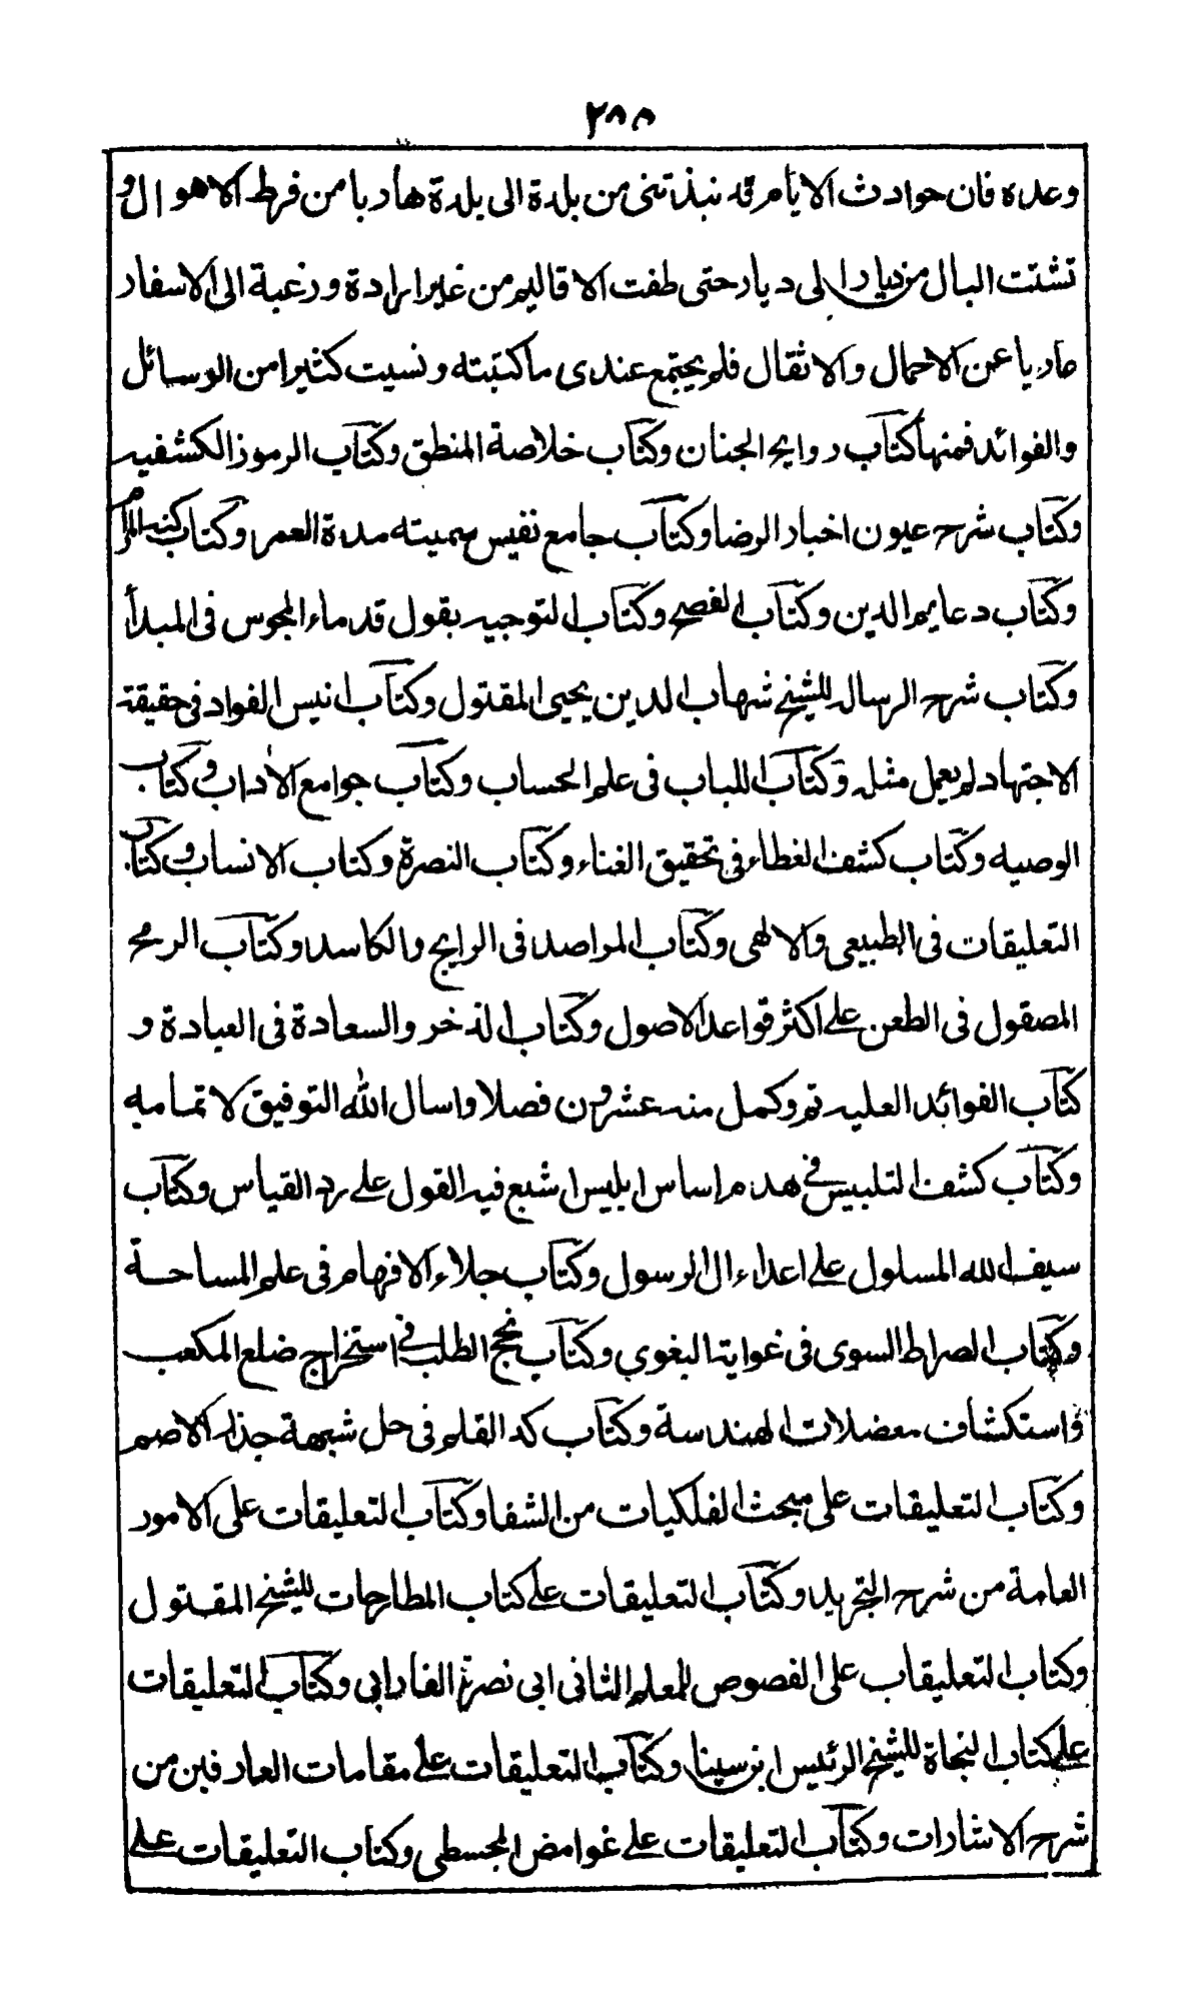 ٢٨٨
وعده فان حوادث الايام قد نبذتنى من بلدة الى بلدة هاربا من فرط الاهوال و
تشتت البال من ديار الى ديار حتى طفت الاقاليم من غير ارادة ورغبة الى الاسفار
عاريا عن الاحمال والاثقال فلم يجتمع عندى ما كتبته ونسيت كثيرا من الوسائل
والفوائد فمنها كتاب روايح الجنان وكتاب خلاصة المنطق وكتاب الرموز الكشفيه
وكتاب شرح عيون اخبار الرضا وكتاب جامع نفيس سميته مدة العمر وكتاب كنه المرام
وكتاب دعايم الدين وكتاب الفصح وكتاب التوجيه بقول قدماء المجوس فى المبدأ
وكتاب شرح الرساله للشيخ شهاب الدين يحيى المقتول وكتاب انيس الفواد فى حقيقة
الاجتهاد لم يعمل مثله وكتاب اللباب فى علم الحساب وكتاب جوامع الاداب وكتاب
الوصيه وكتاب كشف الغطاء فى تحقيق الغناء وكتاب النصرة وكتاب الانساب وكتاب
التعليقات فى الطبيعى والالهى وكتاب المراصد فى الرايج والكاسد وكتاب الرمح
المصقول فى الطعن على اكثر قواعد الاصول وكتاب الذخر والسعادة فى العبادة و
كتاب الفوائد العليه تم وكمل منه عشرون فصلا واسال الله التوفيق لاتمامه
وكتاب كشف التلبيس فى هدم اساس ابليس اشبع فيه القول على رد القياس وكتاب
سيف الله المسلول على اعداء ال الرسول وكتاب جلاء الافهام فى علم المساحة
وكتاب الصراط السوى فى غواية البغوى وكتاب نجح الطلب فى استخراج ضلع المكعب
واستكشاف معضلات الهندسة وكتاب كد القلم فى حل شبهة جذر الاصم
وكتاب التعليقات على مبحث الفلكيات من الشفا وكتاب التعليقات على الامور
العامة من شرح التجريد وكتاب التعليقات على كتاب المطارحات للشيخ المقتول
وكتاب التعليقاب على الفصوص للمعلم الثانى ابى نصرة الفارابي وكتاب التعليقات
على كتاب النجاة للشيخ الرئيس ابن سينا وكتاب التعليقات على مقامات العارفين من
شرح الاشارات وكتاب التعليقات على غوامض المجسطى وكتاب التعليقات على